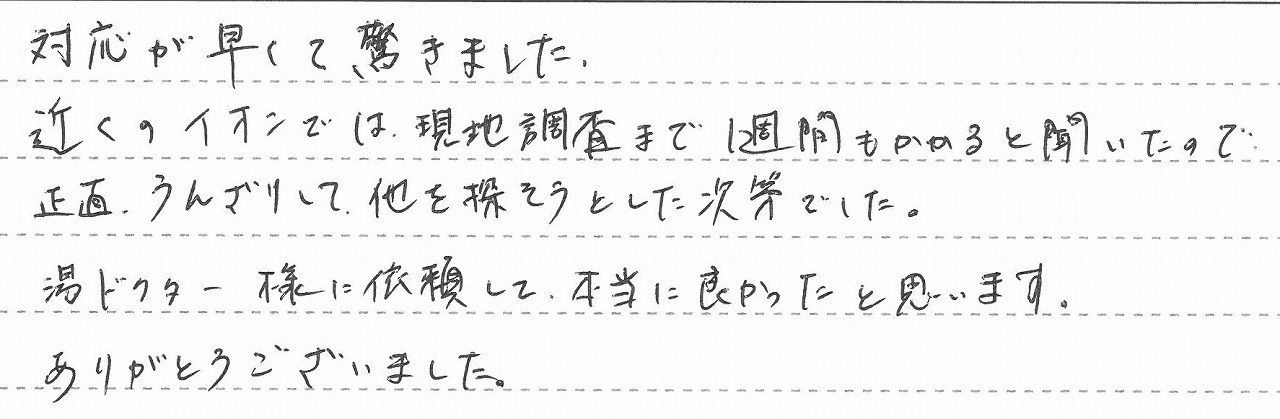 対応が早くて驚きました.
近くのイオンでは、現地調査まで1週間もかかると聞いたので
正直、うんざりして、他を探そうとした次第でした。
湯ドクター様に依頼して、本当に良かったと思います。
ありがとうございました。